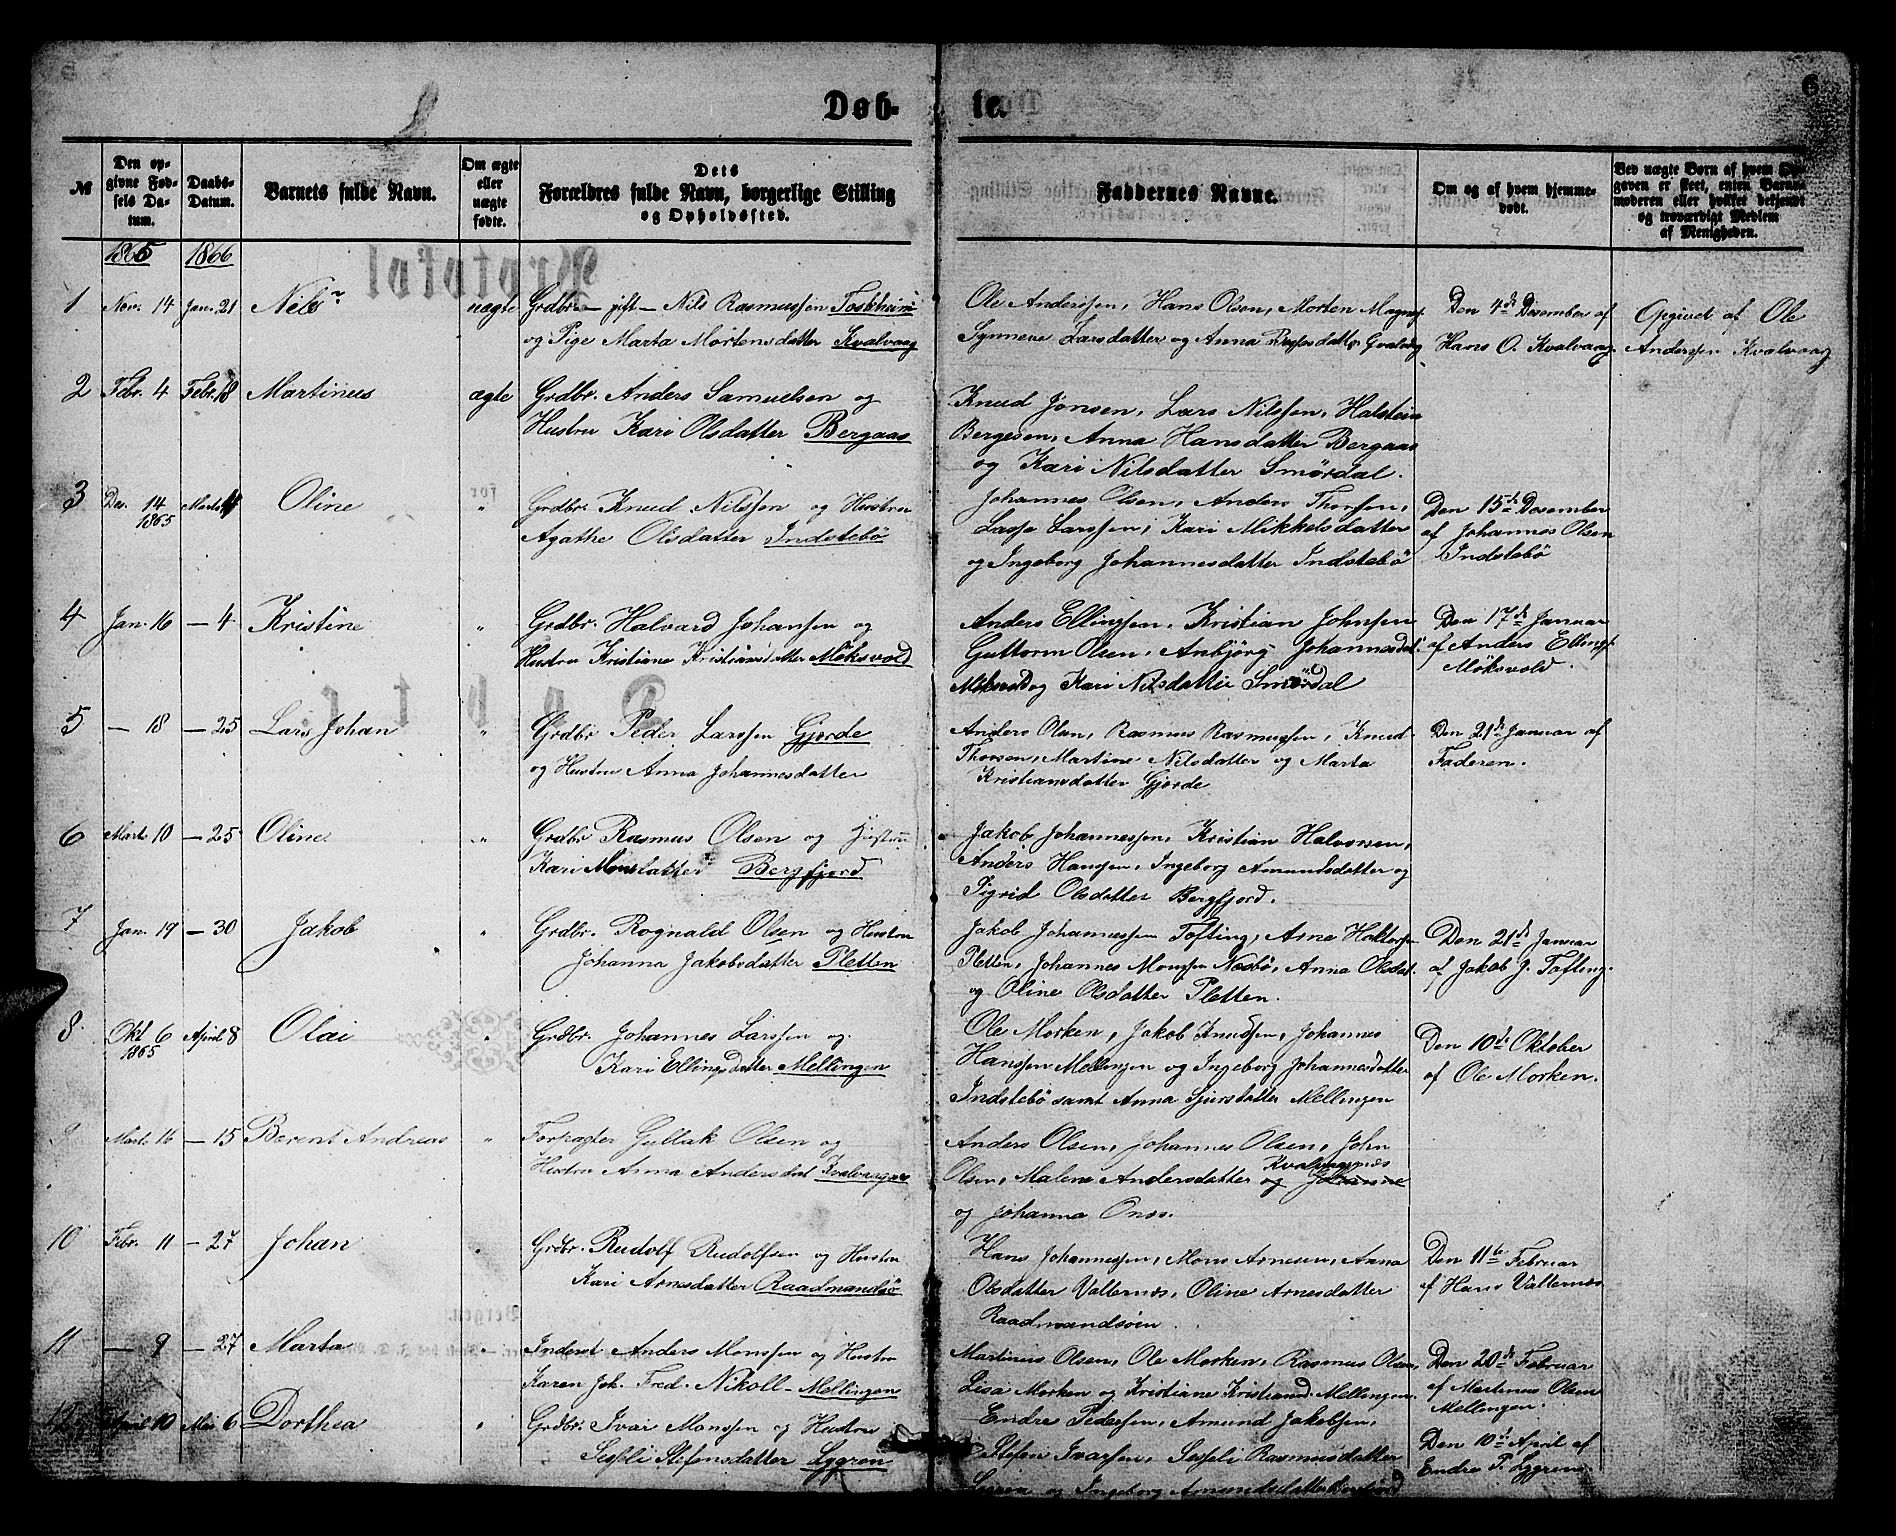 6
Døb- te.
№
Den opgivne Fødsels Datum.
Daabs-Datum.
Barnets fulde Navn.
Om ægte eller uægte fødte.
Dets Forældres fulde Navn, borgerlige Stilling og Opholdssted.
Faddernes Navne.
Om og af hvem hjemmedøbt.
Ved uægte Børn af hvem Opgaven er skeet, enten Barnemoderen eller hvilket bekjendt og troværdigt Medlem af Menigheden.
1865 1866
1 Nov. 14 Jan. 21 Nils uægte Grdbr. – gift – Nils Rasmussen Toskheim
og Pige Marta Mortensdatter Kvalvaag
Ole Anderssen, Hans Olsen, Morten Magnes.
Synneve Larsdatter og Anna Kvalvaag
Den 4de Desember af
Hans O. Kvalvaag.
Opgivet af Ole
Anderssen Kvalvaag
2 Febr. 4 Febr. 18 Martinus ægte Grdbr. Anders Samuelsen og
Hustru Kari Olsdatter Bergaas
Knud Jonsen, Lars Nilssen, Halstein
Bergesen, Anna Hansdatter Bergaas
og Kari Nilsdatter Smördal.
3 Des. 14 1865 Marts 4 Oline " Grdbr. Knud Nilssen og Hustru
Agathe Olsdatter Indstebö
Johannes Olsen, Anders Thorsen,
Lasse Larssen, Kari Mikkelsdatter
og Ingeborg Johannesdatter Indstebö
Den 15de Desember
af Johannes Olsen
Indstebö
4 Jan. 16 – 4 Kristine " Grdbr. Halvard Johansen og
Hustru Kristiane Kristiansdatter Möksvold
Anders Ellingsen, Kristian Johnsen
Guttorm Olsen, Anbjörg Johannesdat.
Möksvold og Kari Nilsdatter Smördal
Den 17de Januar
af Anders Ellings.
Möksvold.
5 – 18 – 25 Lars Johan " Grdbr Peder Larssen Gjerde
og Hustru Anna Johannesdatter
Anders Olsen, Rasmus Rasmussen, Knud
Thorsen, Martine Nilsdatter og Marta
Kristiansdatter Gjerde
Den 21de Januar af
Faderen.
6 Mart. 10 – 25 Oline " Grdbr Rasmus Olsen og Hustru
Kari Monsdatter Bergfjord
Jakob Johannessen, Kristian Halvorsen,
Anders Hansen, Ingeborg Amundsdatter og
Sigrid Olsdatter Bergfjord.
7 Jan. 19 – 30 Jakob " Grdbr. Rognald Olsen og Hustru
Johanna Jakobsdatter Pletten
Jakob Johannessen Tofting, Arne Haltorsen
Pletten, Johannes Monsen Næsbö, Anna Olsdat.
og Oline Olsdatter Pletten.
Den 21de Januar
af Jakob J. Tofting.
8 Okt. 6 1865 April 8 Olai " Grdbr. Johannes Larssen og
Kari Ellingsdatter Mellingen
Ole Morken, Jakob Knudsen, Johannes
Hanssen Mellingen og Ingeborg Johannesdatter
Indstebö samt Anna Sjursdatter Mellingen
Den 10de Oktober
af Ole Morken.
9 Mart. 16 – 15 Berent Andreas " Forpagter Gullak Olsen og
Hustru Anna Andersdat Kvalvaagnæs
Anders Olsen, Johannes Olsen, John
Olsen, Malene Andersdatter Kvalvaagnæs og Johanne
og Johanna Onæs.
10 Febr. 11 – 27 Johan " Grdbr. Rudolf Rudolfsen og Hustru
Kari Arnesdatter Raadmandsö
Hans Johannessen, Mons Arnesen, Anna
Olsdatter Vallernæs, Oline Arnesdatter
Raadmandsöen.
Den 11te Februar
af Hans Vallernæs
11 – 9 – 27 Marta " Inderst Anders Monssen og Hustru
Karen Joh. Fred. Nikoll – Mellingen
Martinus Olsen, Ole Morken, Rasmus Olsen,
Lisa Morken og Kristiane Kristiansd. Mellingen.
Den 20de Februar
af Martinus Olsen
Mellingen.
12 April 10 Mai 6 Dorthea " Grdbr. Ivar Monssen og Hustru
Sesseli Stefensdatter Lygren
Endre Pedersen, Amund Jakobsen,
Steffen Ivarssen, Sesseli Rasmusdatter
og Ingeborg Amundsdatter Bergfjord
Den 10de April af
Endre P. Lygren